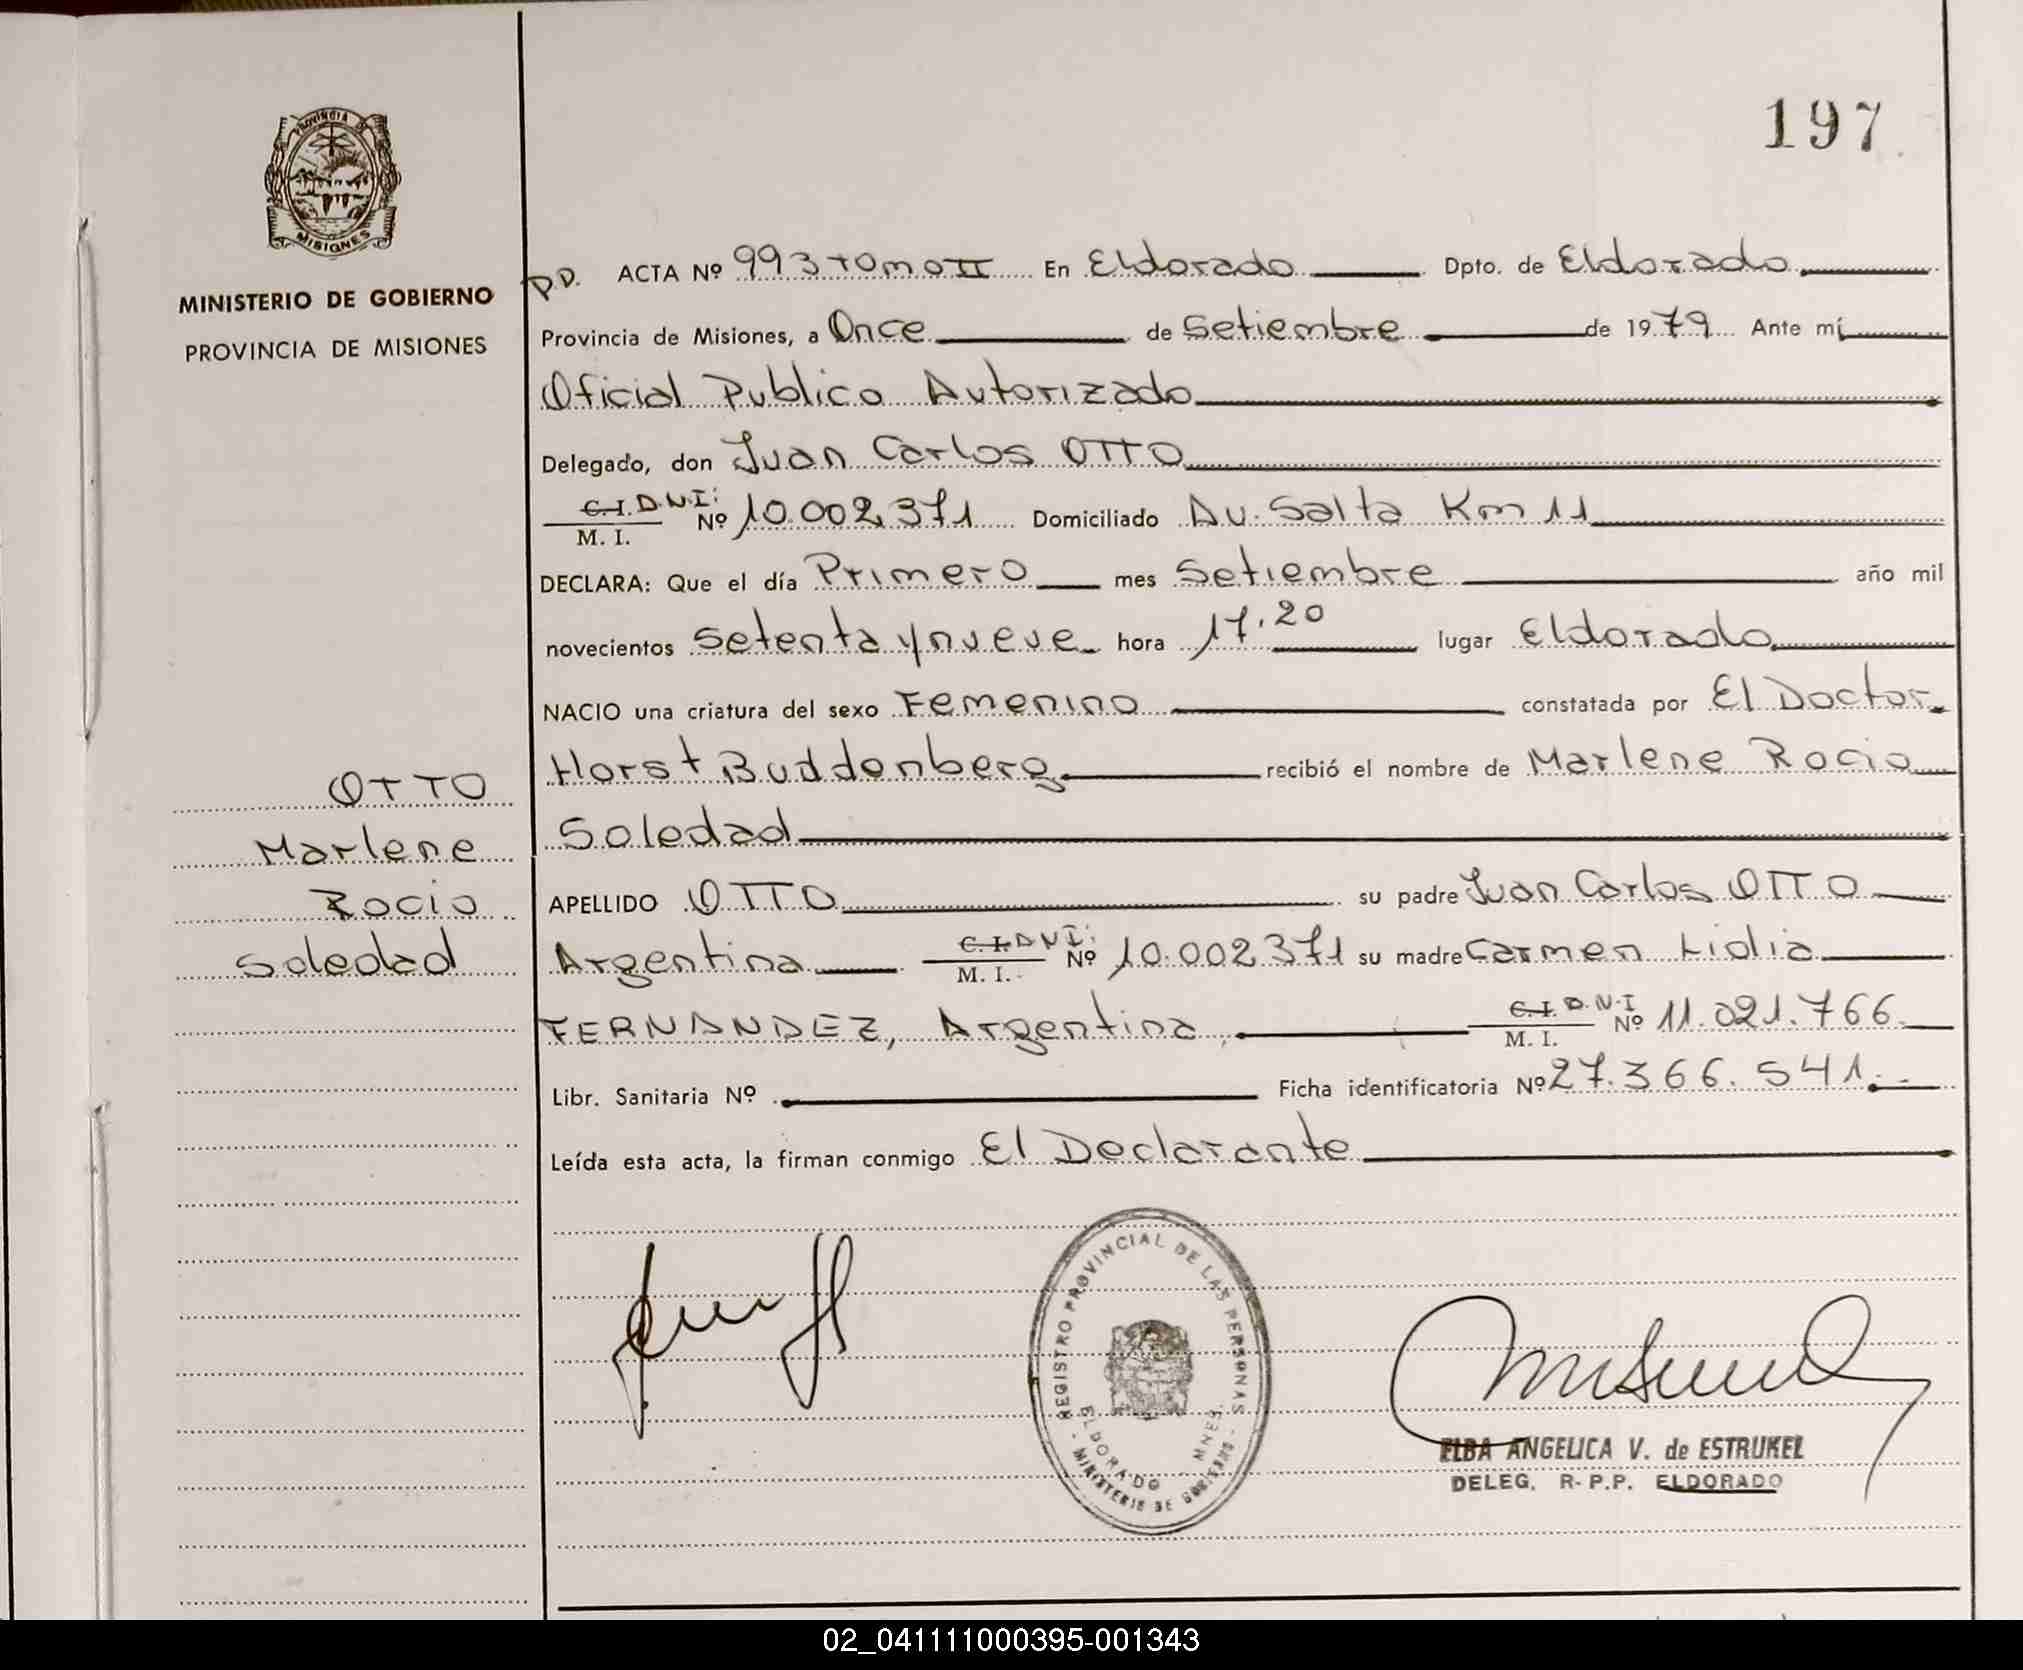 197
PROVINCIA DE
MISIONES
MINISTERIO DE GOBIERNO
PROVINCIA DE MISIONES
D.D. ACTA Nº 993 TOMO II En Eldorado Dpto. de Eldorado
Provincia de Misiones, a Once de Setiembre de 1979 Ante mí
Oficial Publico Autorizado
Delegado, don Juan Carlos OTTO
C.I. D.N.I: M. I. Nº 10.002.371 Domiciliado Av. Salta Km 11
DECLARA: Que el día Primero mes Setiembre año mil
novecientos setenta y nueve hora 17.20 lugar Eldorado
NACIO una criatura del sexo Femenino constatada por El Doctor
Horst Buddenberg recibió el nombre de Marlene Rocio
Soledad
OTTO
Marlene
Rocio
Soledad
APELLIDO OTTO su padre Juan Carlos OTTO
Argentina C.I. DNI: M. I. Nº 10.002371 su madre Carmen Lidia
FERNANDEZ, Argentina, C.I. D.N.I M. I. Nº 11.021.766
Libr. Sanitaria Nº Ficha identificatoria Nº 27.366.541.
Leída esta acta, la firman conmigo El Declarante
REGISTRO PROVINCIAL DE LAS PERSONAS
ELDORADO - MNES.
- MINISTERIO DE GOBIERNO -
ELBA ANGELICA V. de ESTRUKEL
DELEG. R-P.P. ELDORADO
02_041111000395-001343